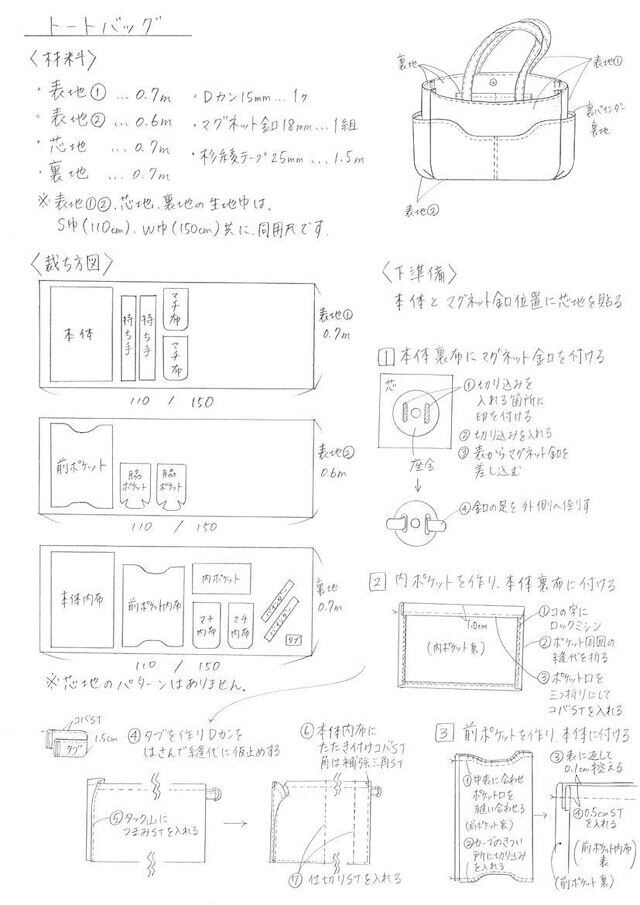 トートバッグ
〈材料〉
・表地① …0.7m
・表地② …0.6m
・芯地 …0.7m
・裏地 …0.7m
・Dカン15mm…1ヶ
・マグネット釦18mm…1組
・杉綾テープ25mm…1.5m
※表地①②、芯地、裏地の生地巾は、
S巾(110cm)、W巾(150cm)共に、同用尺です。
裏地
表地①
裏バインダー
裏地
表地②
〈裁ち方図〉
本体
持ち手
持ち手
マチ布
マチ布
表地①
0.7m
110 / 150
前ポケット
脇ポケット
脇ポケット
表地②
0.6m
110 / 150
本体内布
前ポケット内布
内ポケット
マチ内布
マチ内布
バインダー
バインダー
タブ
裏地
0.7m
110 / 150
※芯地のパターンはありません。
〈下準備〉
本体とマグネット釦位置に芯地を貼る
1 本体裏布にマグネット釦を付ける
芯
座金
①切り込みを
入れる箇所に
印を付ける
②切り込みを入れる
③表からマグネット釦を
差し込む
④釦の足を外側へ倒す
2 内ポケットを作り、本体裏布に付ける
1.0cm
(内ポケット裏)
①コの字に
ロックミシン
②ポケット周囲の
縫代を折る
③ポケット口を
三ツ折りにして
コバSTを入れる
コバST
1.5cm
タブ
④タブを作りDカンを
はさんで縫代に仮止めする
⑤タック山に
つまみSTを入れる
⑥本体内布に
たたき付けコバST
角は補強三角ST
⑦仕切りSTを入れる
3 前ポケットを作り、本体に付ける
①中表に合わせ
ポケット口を
縫い合わせる
(前ポケット裏)
②カーブのきつい
所に切り込み
を入れる
③表に返して
0.1cm控える
④0.5cmST
を入れる
(前ポケット内布
表)
(前ポケット裏)